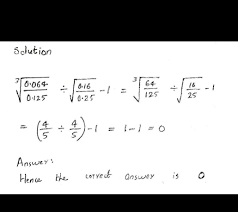 Solution
∛(0.064/0.125) ÷ √(0.16/0.25) - 1 = ∛(64/125) ÷ √(16/25) - 1
= (4/5 ÷ 4/5) - 1 = 1 - 1 = 0
Answer:
Hence the correct answer is 0